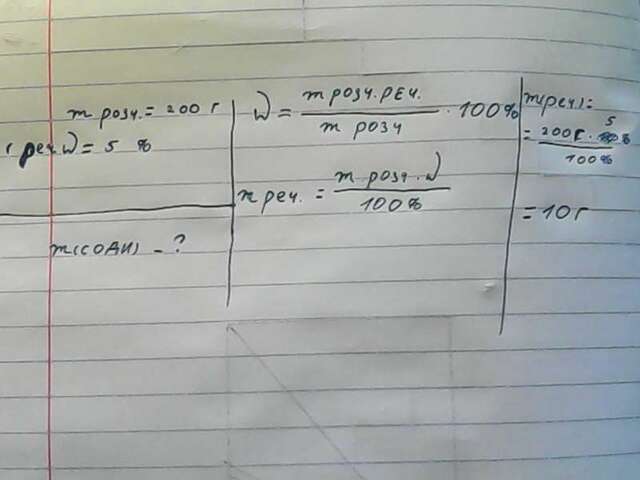 m розч. = 200 г
реч. W = 5 %
m(соди) - ?
W = m розч. реч. / m розч · 100%
m реч. = m розч · W / 100%
m(реч) =
= 200г · 5% / 100%
= 10г